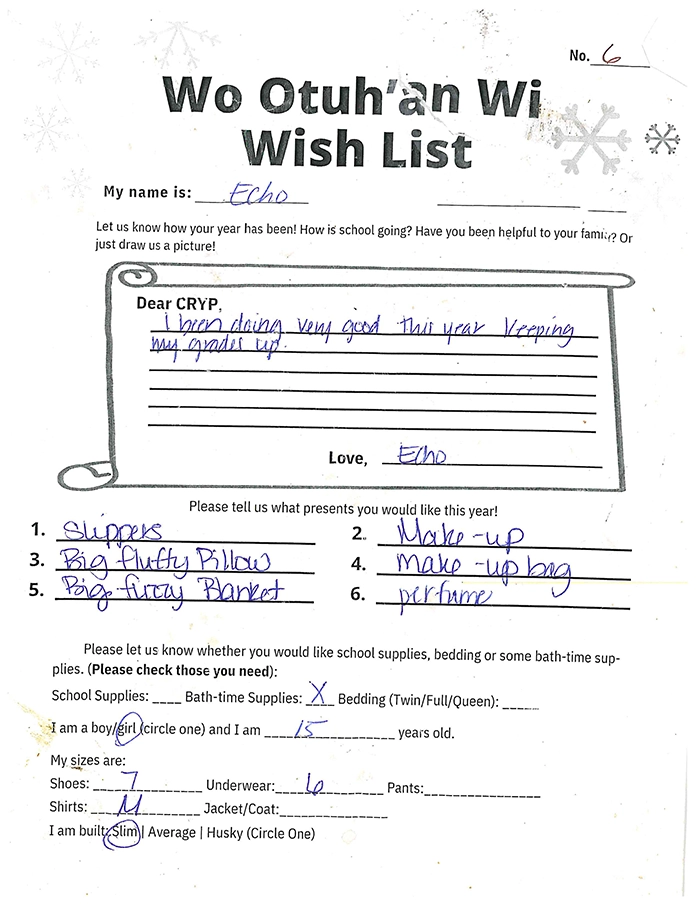 No. 6
Wo Otuh'an Wi
Wish List
My name is: Echo
Let us know how your year has been! How is school going? Have you been helpful to your family? Or
just draw us a picture!
Dear CRYP,
I been doing very good this year keeping
my grades up.
Love, Echo
Please tell us what presents you would like this year!
1. Slippers 2. Make-up
3. Big fluffy Pillow 4. Make-up bag
5. Big fuzzy Blanket 6. perfume
Please let us know whether you would like school supplies, bedding or some bath-time sup-
plies. (Please check those you need):
School Supplies: ____ Bath-time Supplies: X Bedding (Twin/Full/Queen): _____
I am a boy/girl (circle one) and I am 15 years old.
My sizes are:
Shoes: 7 Underwear: 6 Pants:________________
Shirts: M Jacket/Coat:_______________
I am built: Slim | Average | Husky (Circle One)